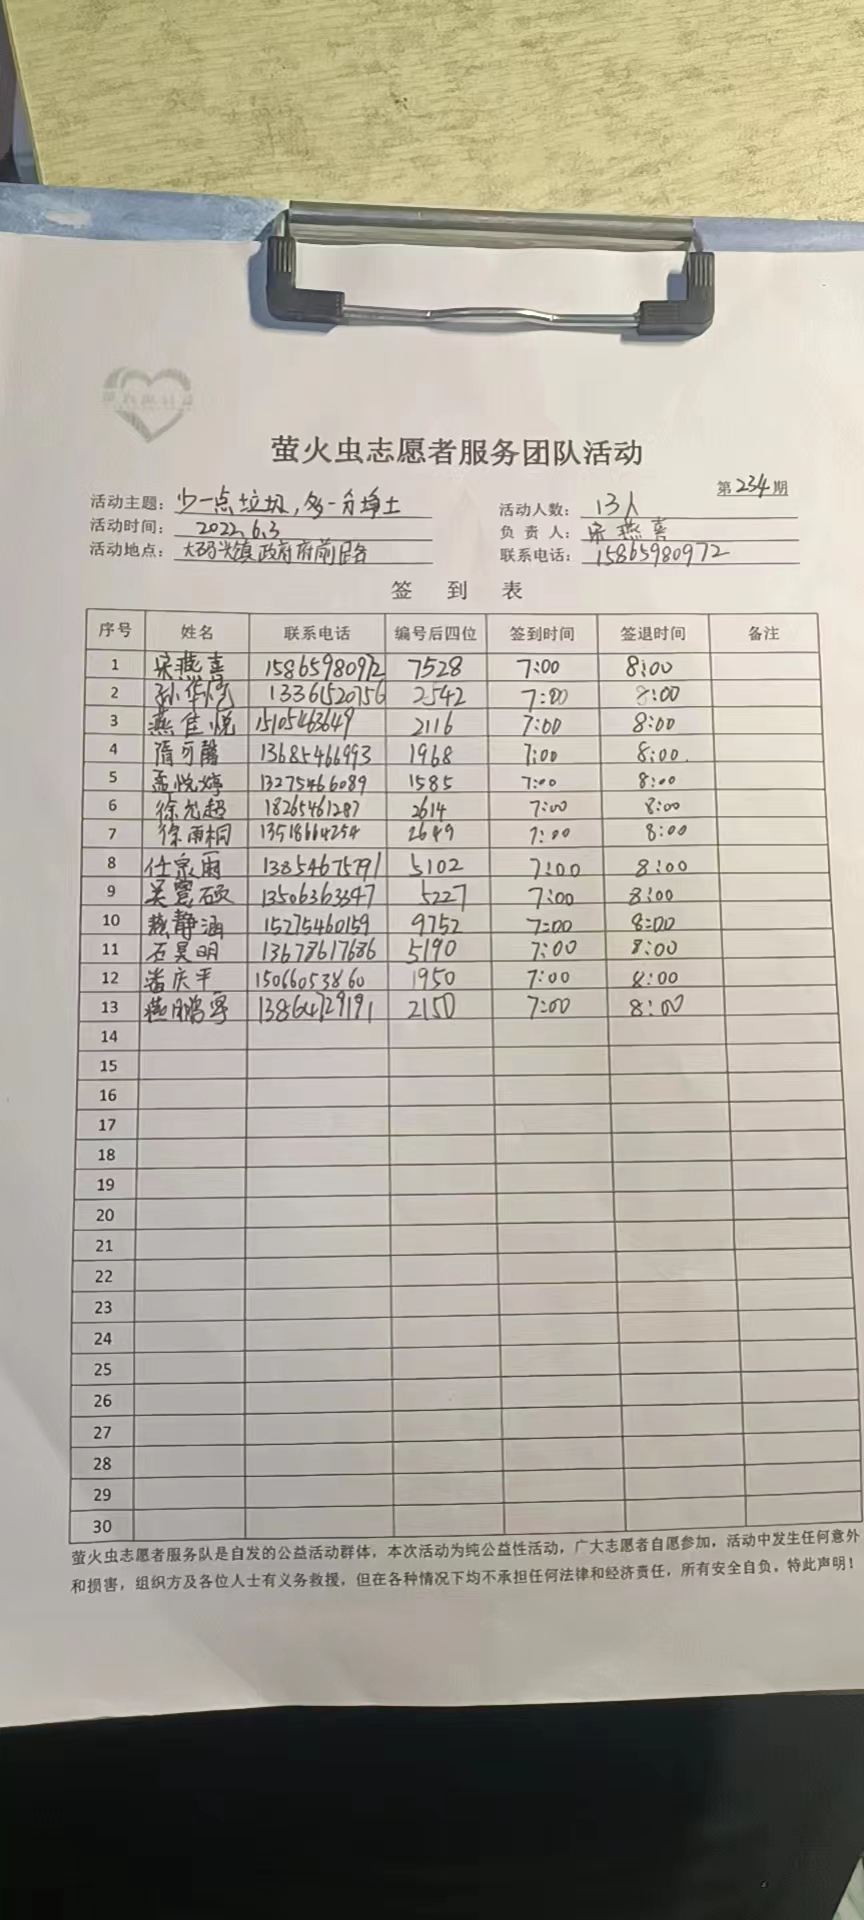 萤火虫志愿者服务团队活动
第234期
活动主题：少一点垃圾，多一分净土 活动人数：13人
活动时间：2022.6.3 负责人：宋燕喜
活动地点：大码头镇政府府前路 联系电话：15865980972
签到表
序号 姓名 联系电话 编号后四位 签到时间 签退时间 备注
1 宋燕喜 15865980972 7528 7:00 8:00
2 孙华悦 13361520756 2542 7:00 8:00
3 燕佳悦 15105463649 2116 7:00 8:00
4 隋可馨 13685466993 1968 7:00 8:00
5 孟悦婷 13275466089 1585 7:00 8:00
6 徐光超 18265461287 2614 7:00 8:00
7 徐雨桐 13518664254 2649 7:00 8:00
8 任泉雨 13854675791 5102 7:00 8:00
9 吴硕 13506363347 5227 7:00 8:00
10 燕静涵 15275460159 9752 7:00 8:00
11 石昊明 13678617686 5190 7:00 8:00
12 庆平 15066053860 1950 7:00 8:00
13 燕鹏 13864729191 2150 7:00 8:00
14
15
16
17
18
19
20
21
22
23
24
25
26
27
28
29
30
萤火虫志愿者服务队是自发的公益活动群体，本次活动为纯公益性活动，广大志愿者自愿参加，活动中发生任何意外
和损害，组织方及各位人士有义务救援，但在各种情况下均不承担任何法律和经济责任，所有安全自负。特此声明！